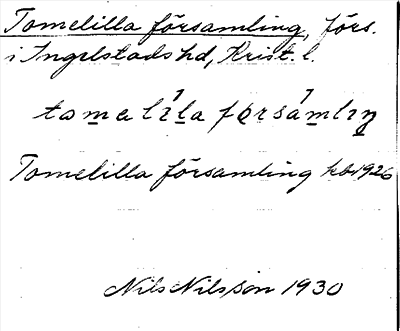 Tomelilla församling, förs.
i Ingelstads hd, Krist. l.
tomelila fǫrsamlıŋ
Tomelilla församling kb 1926
Nils Nilsson 1930